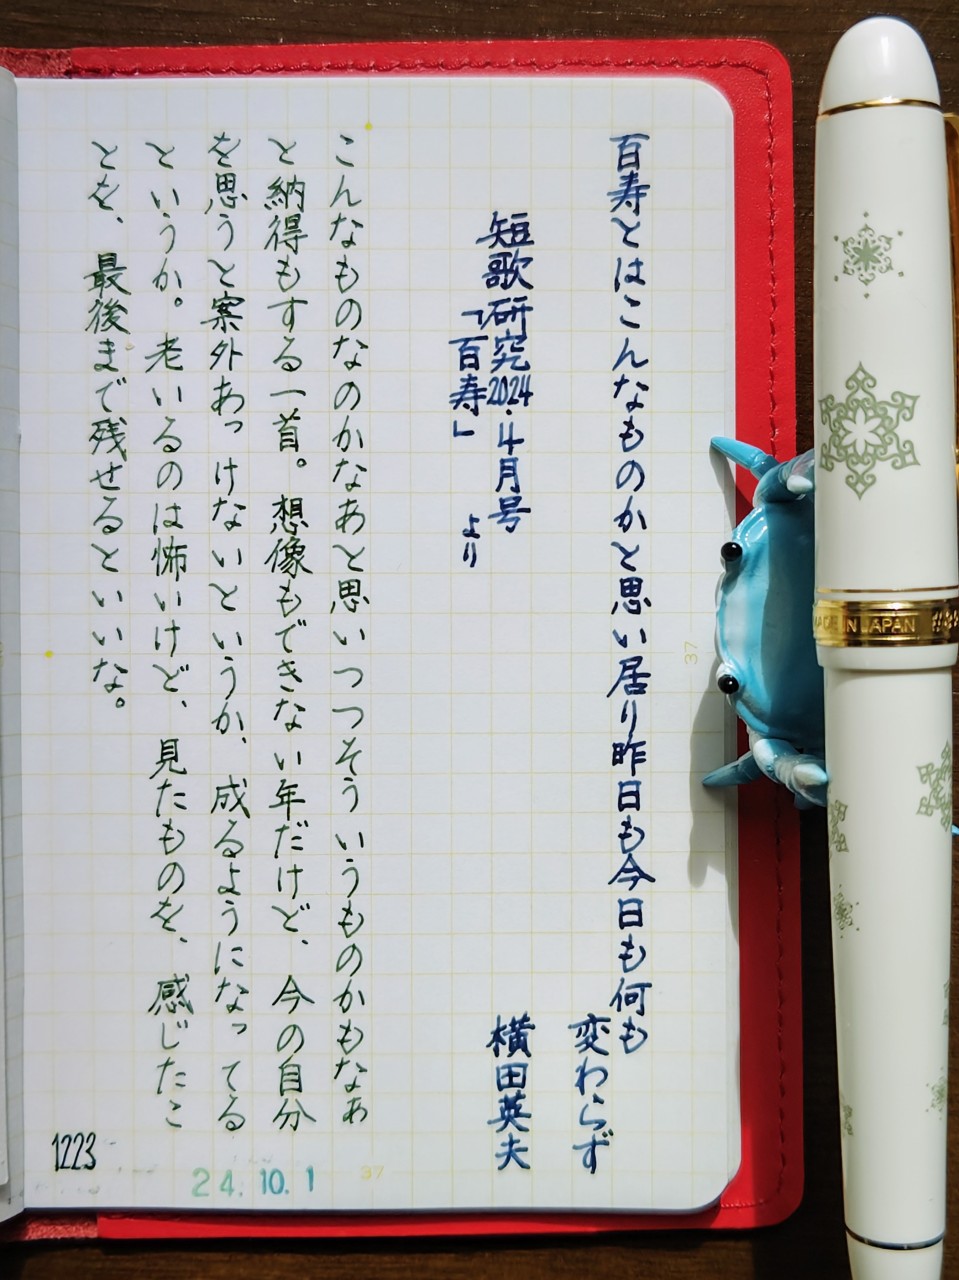 百寿とはこんなものかと思い居り昨日も今日も何も
変わらず
横田英夫
短歌研究2024.4月号
「百寿」より
こんなものなのかなあと思いつつそういうものかもなぁ
と納得もする一首。想像もできない年だけど、今の自分
を思うと案外あっけないというか、成るようになってる
というか。老いるのは怖いけど、見たものを、感じたこ
とを、最後まで残せるといいな。
1223
24.10.1
37
37
MADE IN JAPAN